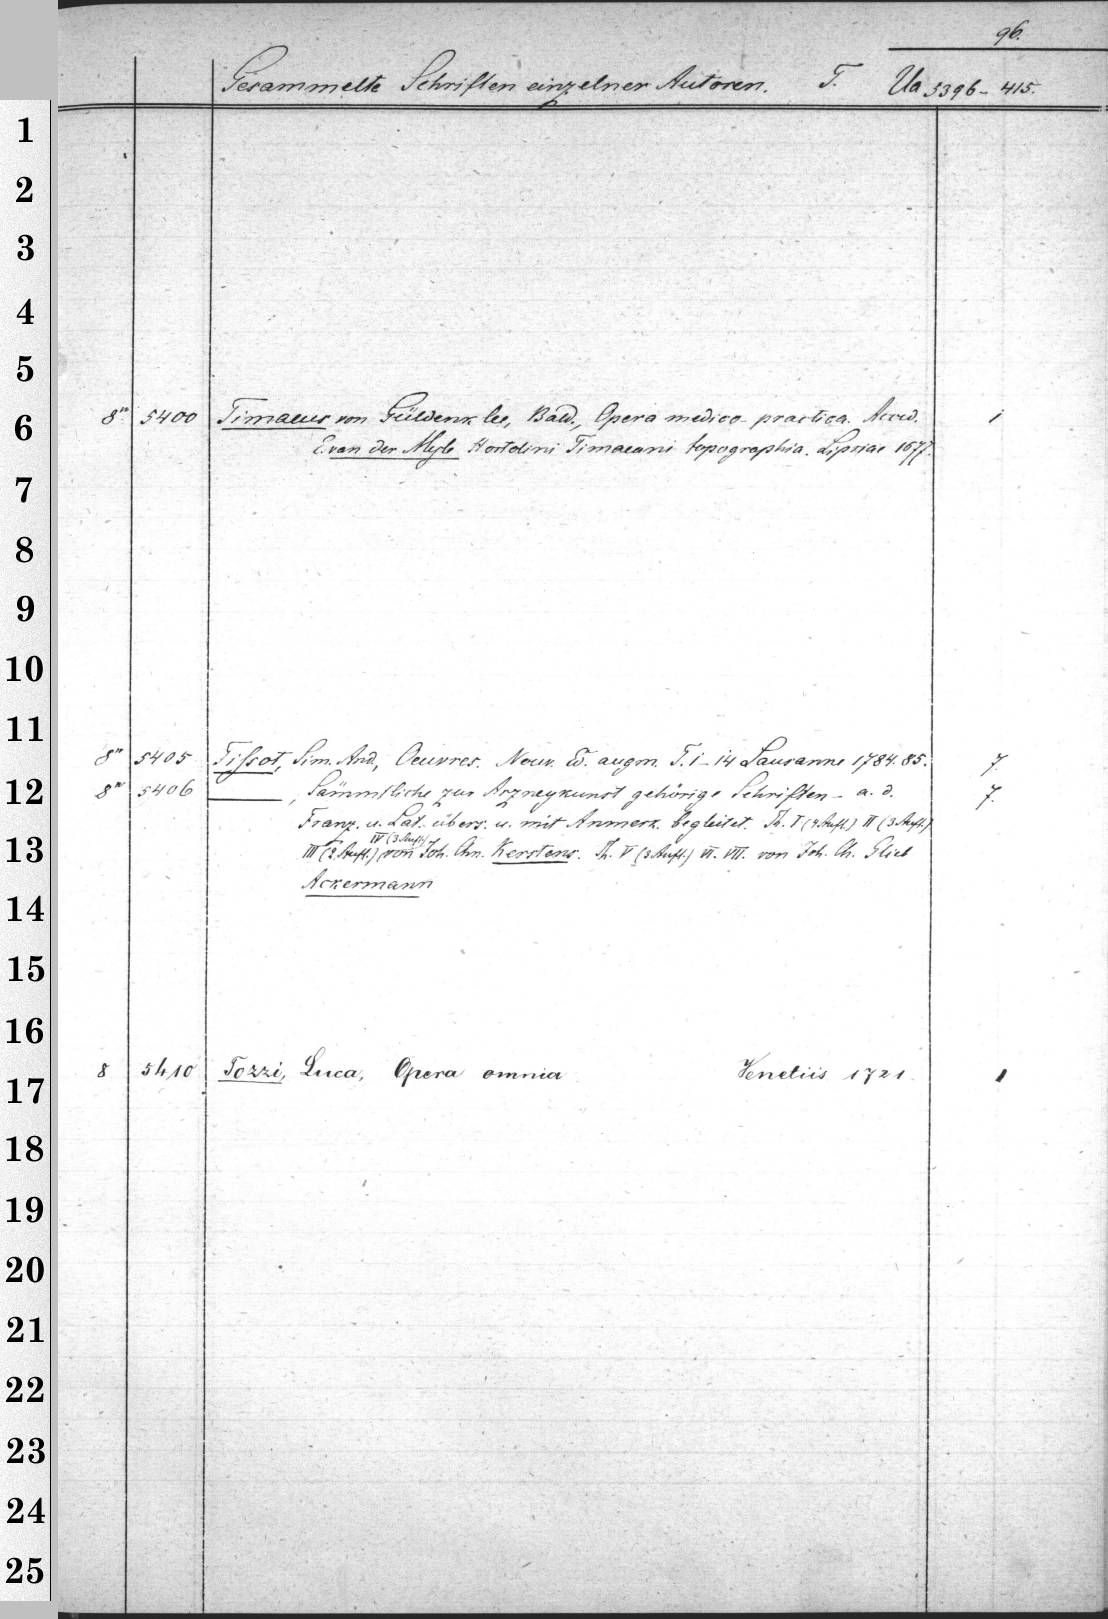 96.
Gesammelte Schriften einzelner Autoren. T. Ua 5396-415.
1
2
3
4
5
8° 5400 Timaeus von Güldenklee, Bald., Opera medico-practica. Acced. 1
6
E. van der Myle Hortulini Timaeani topographia. Lipsiae 1677.
7
8
9
10
11
8° 5405 Tissot, Sim. And., Oeuvres. Nouv. Ed. augm. T. 1-14 Lausanne 1784.85. 7.
12
8° 5406 ——, Sämmtliche zur Arzneykunst gehörige Schriften - a. d. 7.
Franz. u. Lat. übers. u. mit Anmerk. begleitet. Th. I (4 Aufl.) II (3 Aufl.)
IV (3 Aufl.)
13
III (2. Aufl.) von Joh. Chn. Kerstens. Th. V (3 Aufl.) VI. VII. von Joh. Ch. Glieb
Ackermann
14
15
16
8 5410 Tozzi, Luca, Opera omnia Venetiis 1721. 1
17
18
19
20
21
22
23
24
25